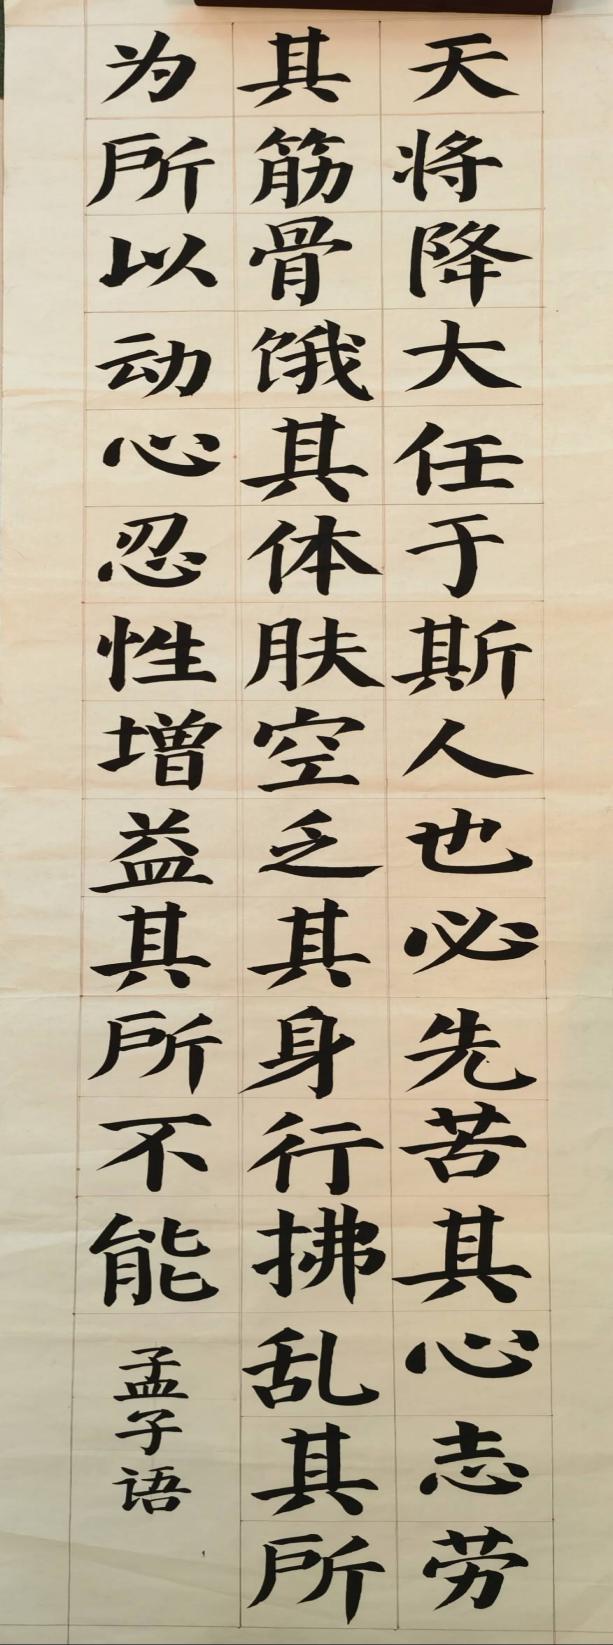 天将降大任于斯人也必先苦其心志劳
其筋骨饿其体肤空乏其身行拂乱其所
为所以动心忍性增益其所不能
孟子语